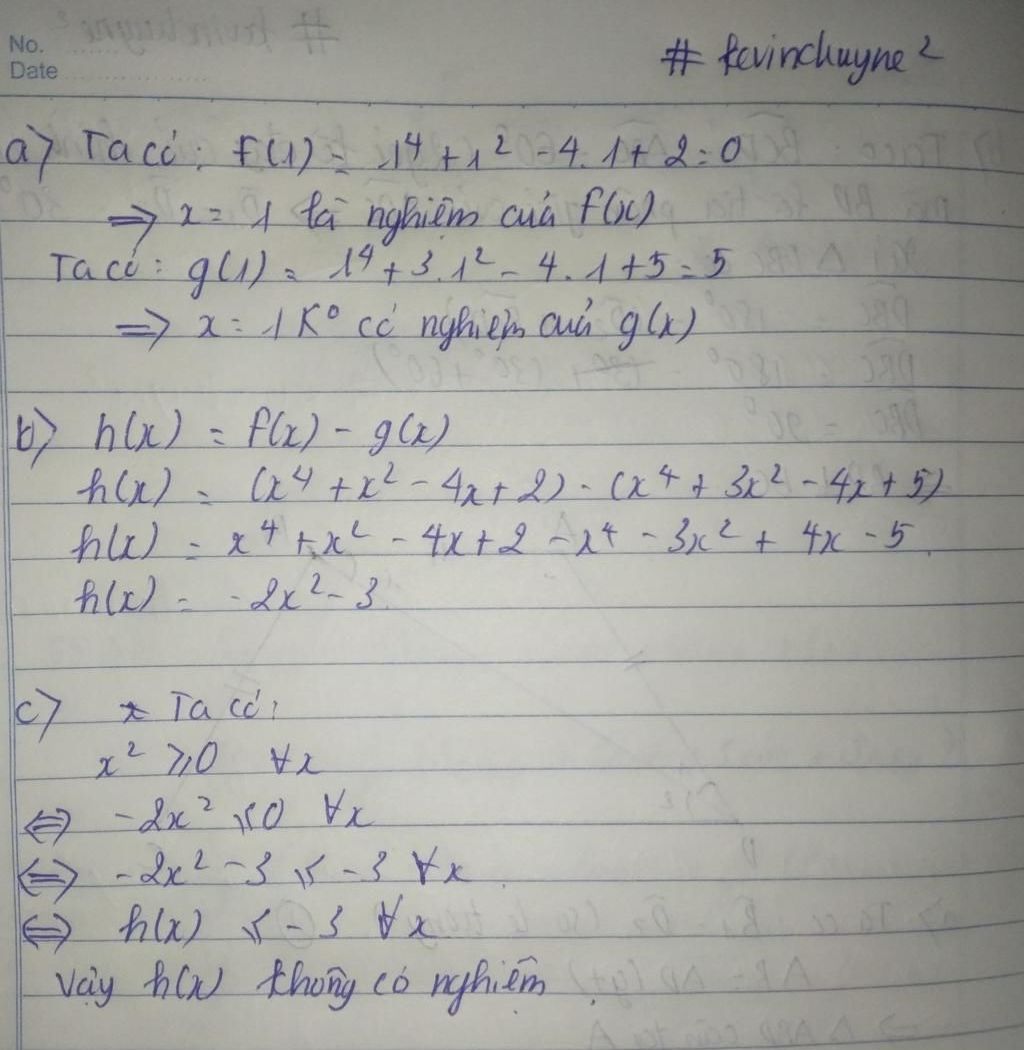 No.
Date
# kevinchuyne²
a) Ta có: f(1) = 1⁴ + 1² - 4.1 + 2 = 0
⇒ x = 1 là nghiệm của f(x)
Ta có: g(1) = 1⁴ + 3.1² - 4.1 + 5 = 5
⇒ x = 1 K° có nghiệm của g(x)
b) h(x) = f(x) - g(x)
h(x) = (x⁴ + x² - 4x + 2) - (x⁴ + 3x² - 4x + 5)
h(x) = x⁴ + x² - 4x + 2 - x⁴ - 3x² + 4x - 5
h(x) = -2x² - 3
c) Ta có:
x² ⩾ 0 ∀x
⇔ -2x² ⩽ 0 ∀x
⇔ -2x² - 3 ⩽ -3 ∀x
⇔ h(x) ⩽ -3 ∀x
Vậy h(x) không có nghiệm